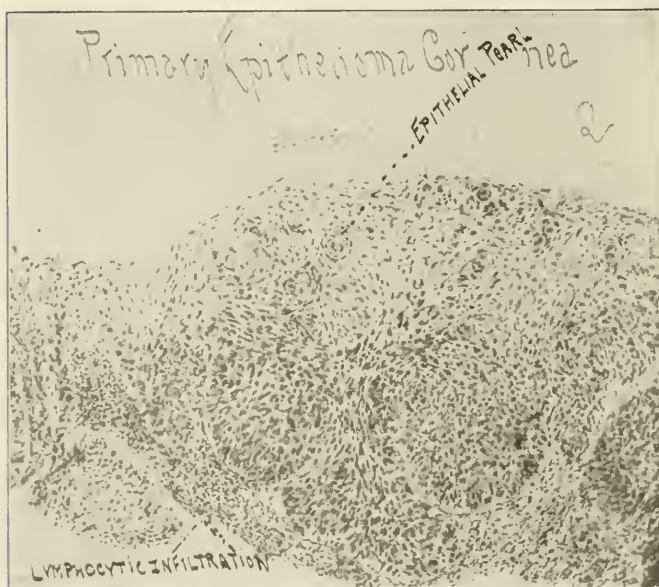 Primary Epithelioma Cornea
EPITHELIAL PEARL
2
LYMPHOCYTIC INFILTRATION